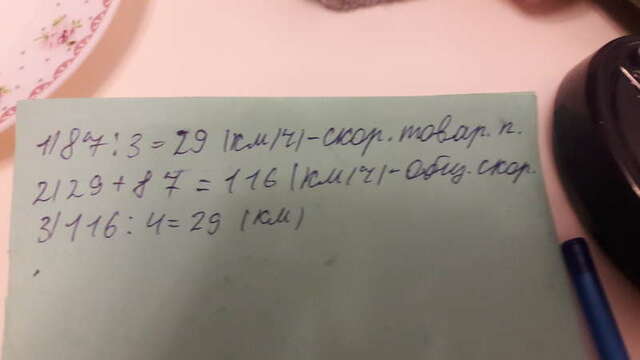 1) 87 : 3 = 29 (км/ч) - скор. товар. п.
2) 29 + 87 = 116 (км/ч) - общ. скор.
3) 116 : 4 = 29 (км)